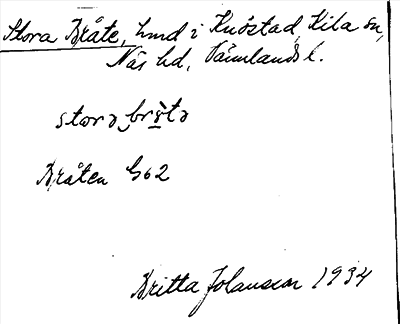 Stora Bråte, hmd i Knöstad, Kila sn,
Näs hd, Värmlands l.
storə brå̀tə
Bråten G62
Britta Johansson 1934